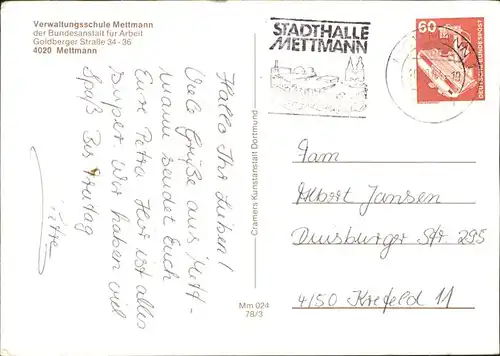 Verwaltungsschule Mettmann
der Bundesanstalt für Arbeit
Goldberger Straße 34-36
4020 Mettmann
Hallo Ihr Lieben!
Viele Grüße aus Mett-
mann sendet Euch
Eure Petra. Hier ist alles
super. Wir haben viel
Spaß. Bis Freitag
Petra
Cramers Kunstanstalt Dortmund
Mm 024
78/3
STADTHALLE
METTMANN
60
DEUTSCHE BUNDESPOST
Fam
Albert Jansen
Duisburger Str. 295
4150 Krefeld 11